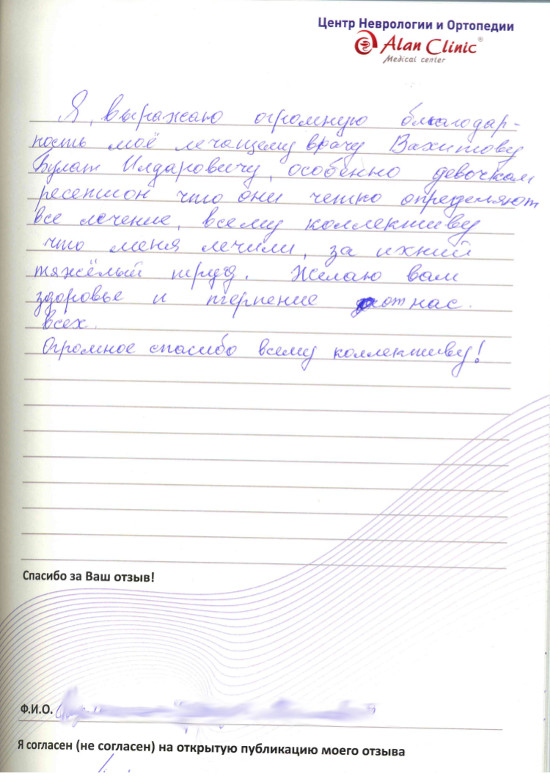 Центр Неврологии и Ортопедии
Alan Clinic®
Medical center
Я, выражаю огромную благодар-
ность моё лечащему врачу Вахитову
Булат Илдаровичу, особенно девочкам
ресепшон что они чётко определяют
все лечение, всему коллективу
что меня лечили, за ихний
тяжёлый труд. Желаю вам
здоровье и терпение от нас
всех.
Огромное спасибо всему коллективу!
Спасибо за Ваш отзыв!
Ф.И.О.
Я согласен (не согласен) на открытую публикацию моего отзыва